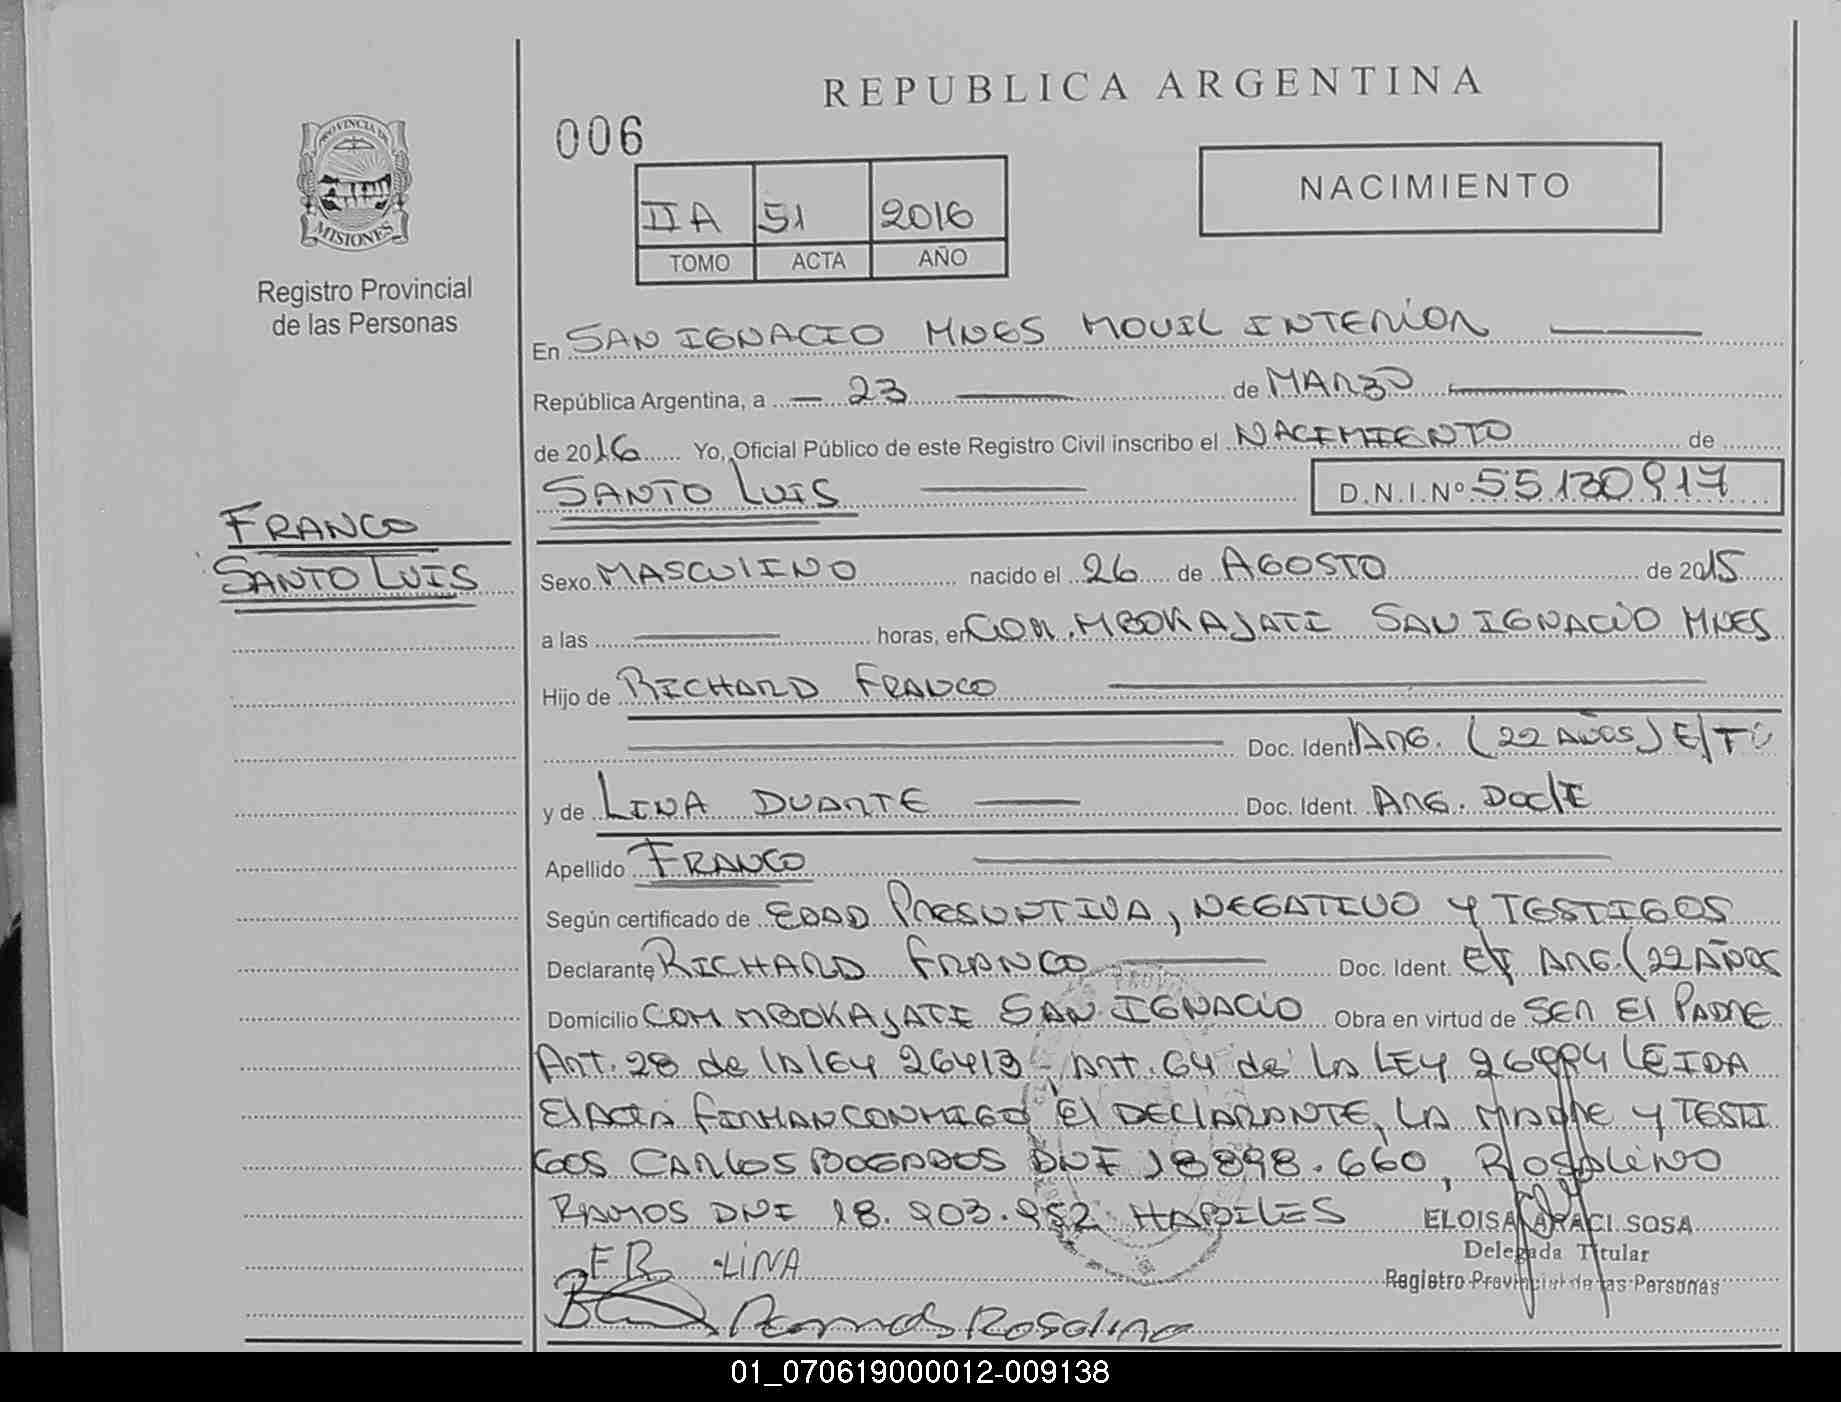 REPUBLICA ARGENTINA
006
PROVINCIA DE
MISIONES
Registro Provincial
de las Personas
NACIMIENTO
II A 51 2016
TOMO ACTA AÑO
En SAN IGNACIO MNES MOVIL INTERIOR
República Argentina, a 23 de MARZO
de 2016 Yo, Oficial Público de este Registro Civil inscribo el NACIMIENTO de
SANTO LUIS D.N.I.Nº 55.130.917
FRANCO
SANTO LUIS
Sexo MASCULINO nacido el 26 de AGOSTO de 2015
a las horas, en COM. MBOKAJATI SAN IGNACIO MNES
Hijo de RICHARD FRANCO
Doc. Ident. ARG. (22 AÑOS) E/T
y de LINA DUARTE Doc. Ident. ARG. Doc/E
Apellido FRANCO
Según certificado de EDAD PRESUNTIVA, NEGATIVO Y TESTIGOS
Declarante RICHARD FRANCO Doc. Ident. E/T ARG. (22 AÑOS
Domicilio COM MBOKAJATI SAN IGNACIO Obra en virtud de SER El PADRE
ART. 28 de lA lEY 26413 - ART. 64 de LA LEY 26994 LEIDA
El ACTA FIRMAN CONMIGO El DECLARANTE, LA MADRE Y TESTI
GOS CARLOS BOGADOS DNI 18898.660, ROSALINO
RAMOS DNI 18.903.952 HABILES
ELOISA ARACI SOSA
Delegada Titular
Registro Provincial de las Personas
FR LINA
Ramos Rosalino
01_070619000012-009138